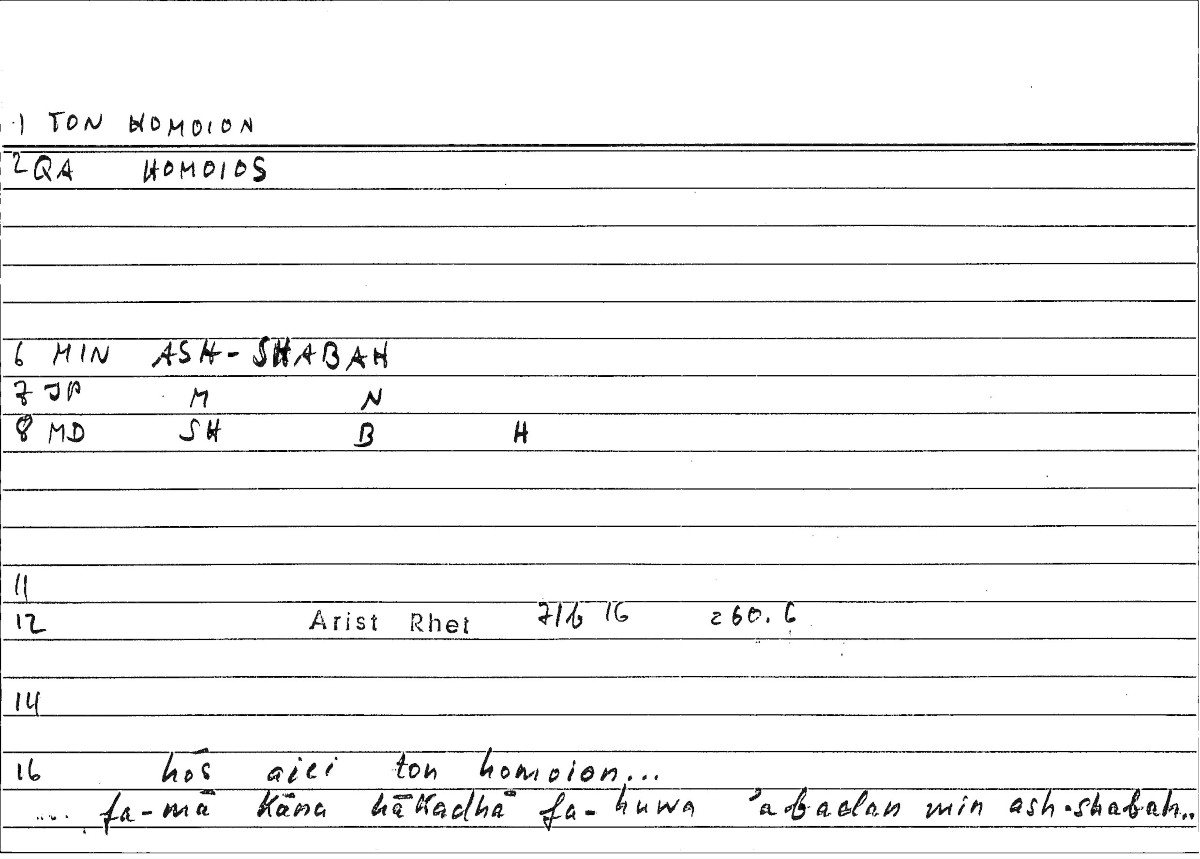 1 TON HOMOION
2 QA HOMOIOS
6 MIN ASH-SHABAH
7 JP M N
8 MD SH B H
11
12 Arist Rhet 71b 16 260.6
14
16 hōs aiei ton homoion...
... fa-mā kāna hākadhā fa-huwa 'abadan min ash-shabah..